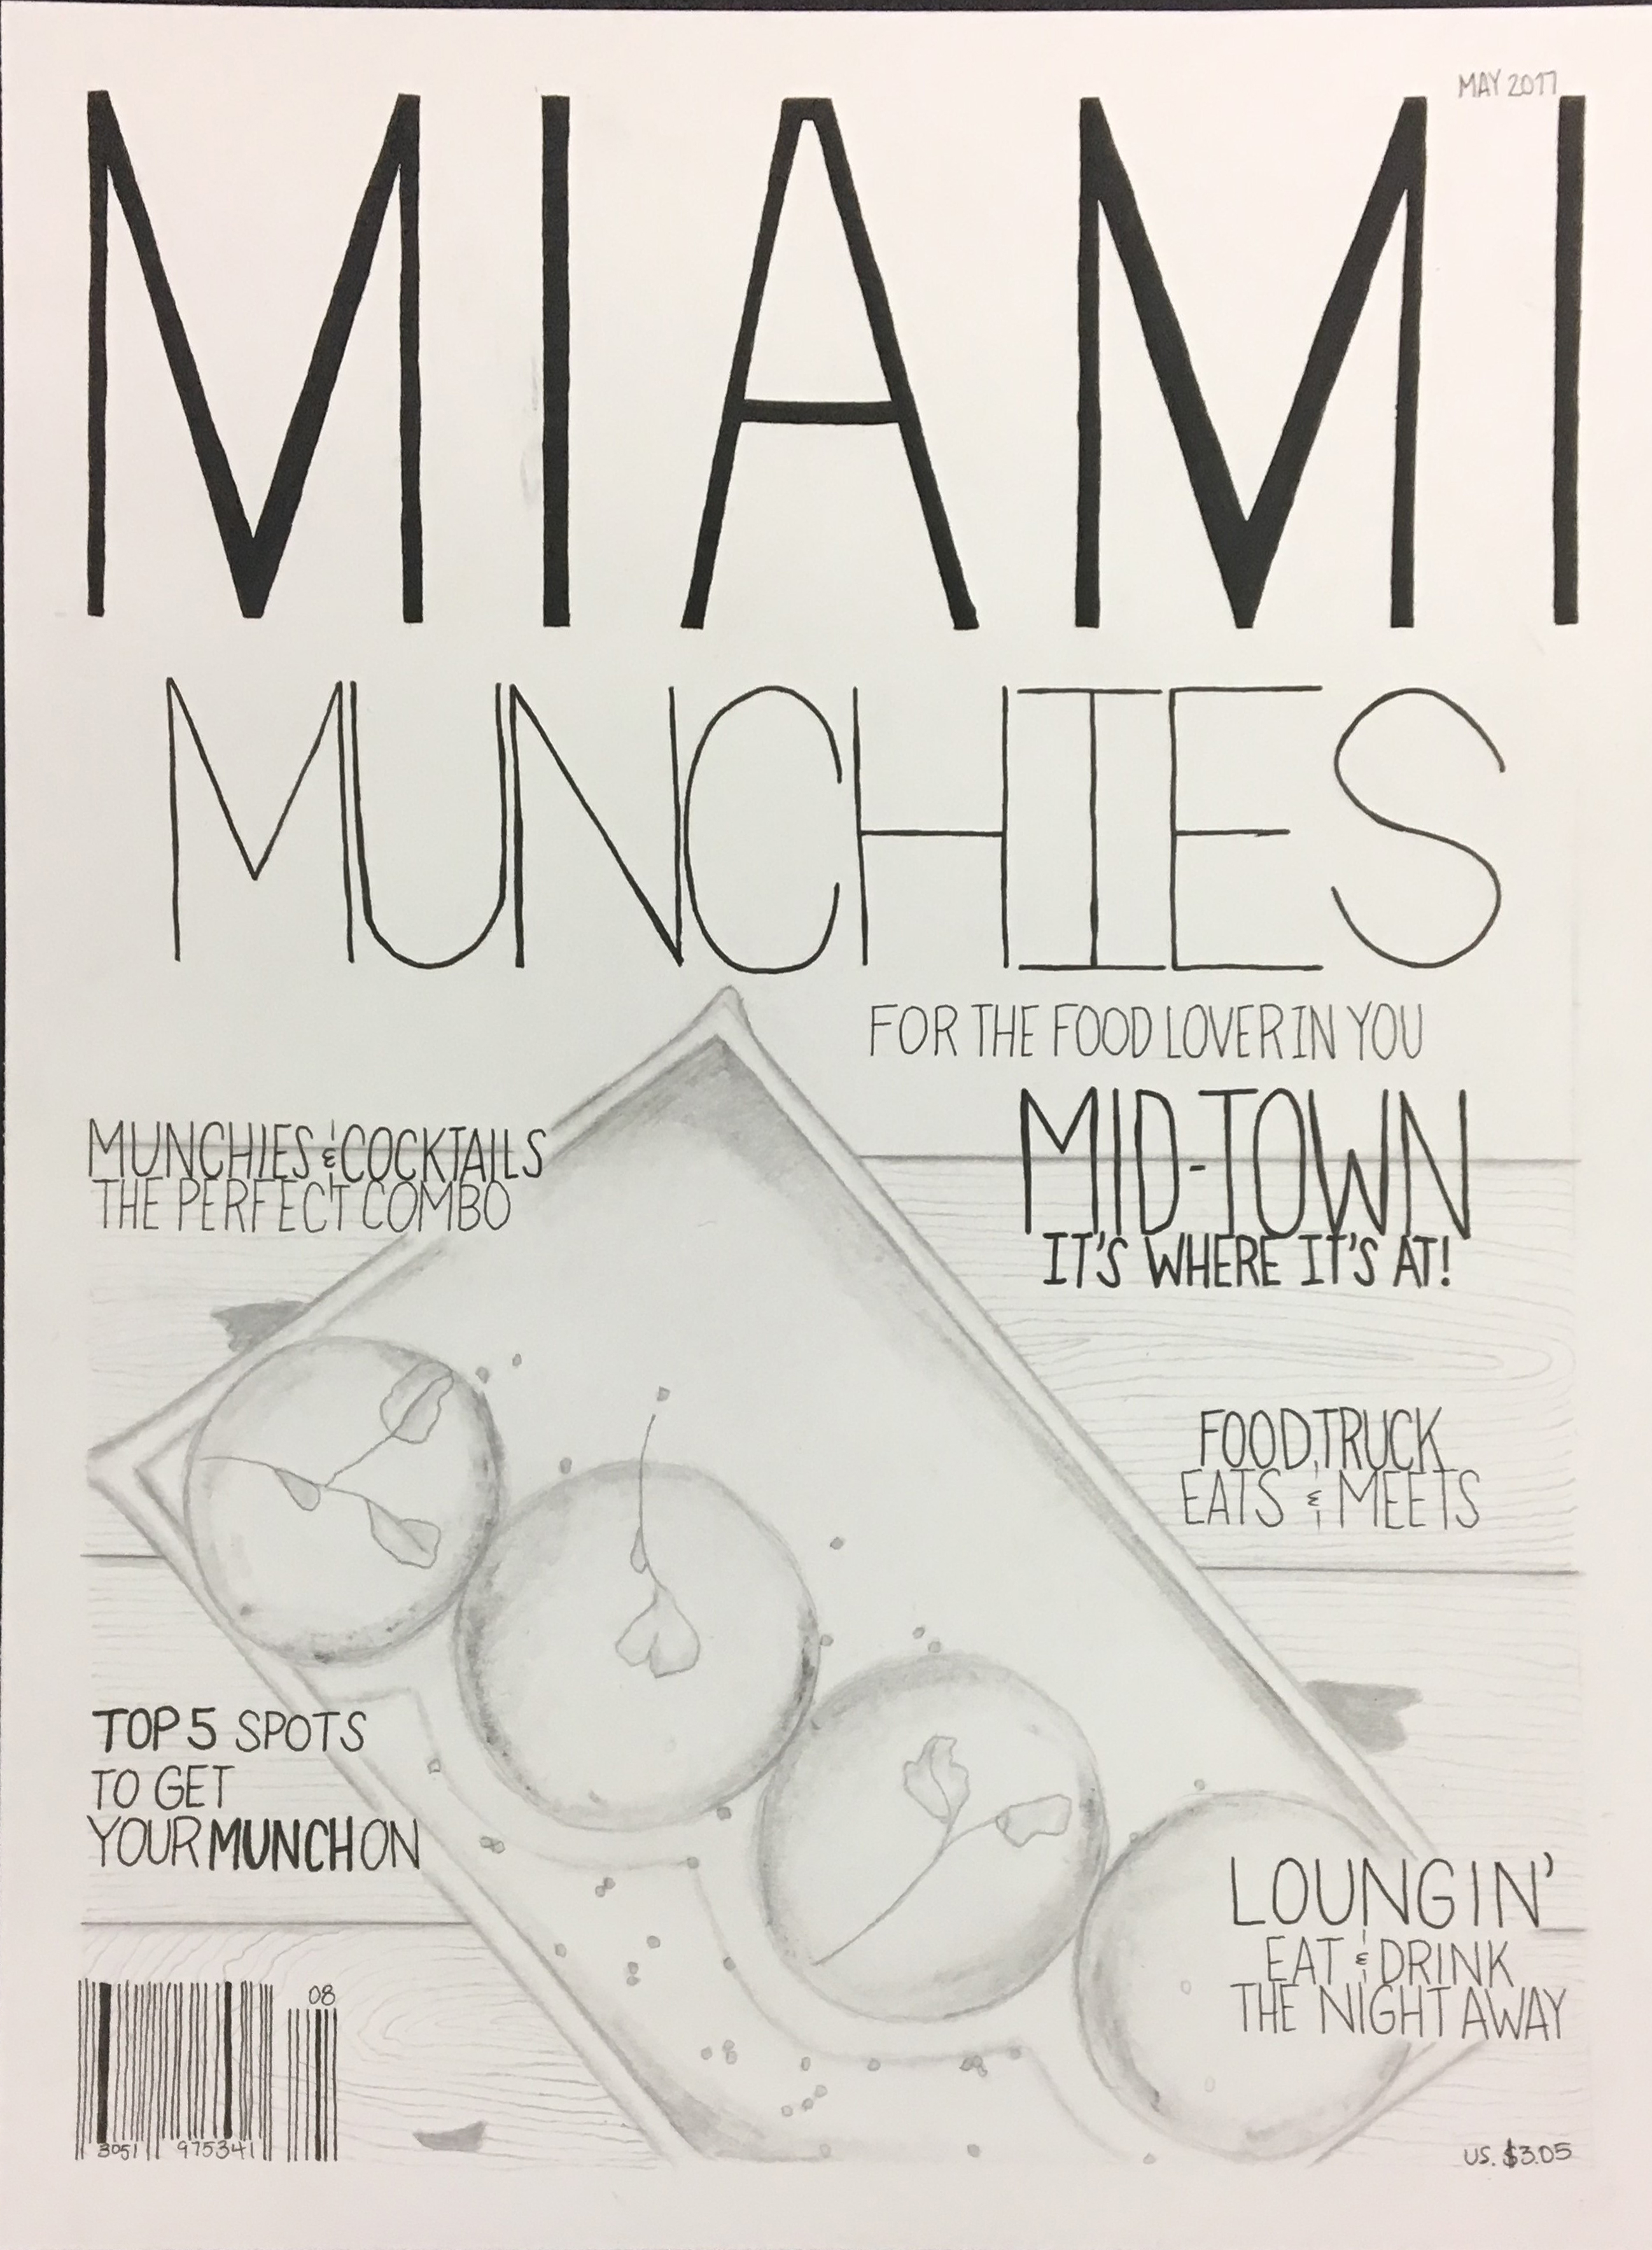 MAY 2017
MIAMI
MUNCHIES
FOR THE FOOD LOVER IN YOU
MUNCHIES & COCKTAILS
THE PERFECT COMBO
MID-TOWN
IT'S WHERE IT'S AT!
FOOD TRUCK
EATS & MEETS
TOP 5 SPOTS
TO GET
YOUR MUNCH ON
LOUNGIN'
EAT & DRINK
THE NIGHT AWAY
08
3051 975341
US. $3.05